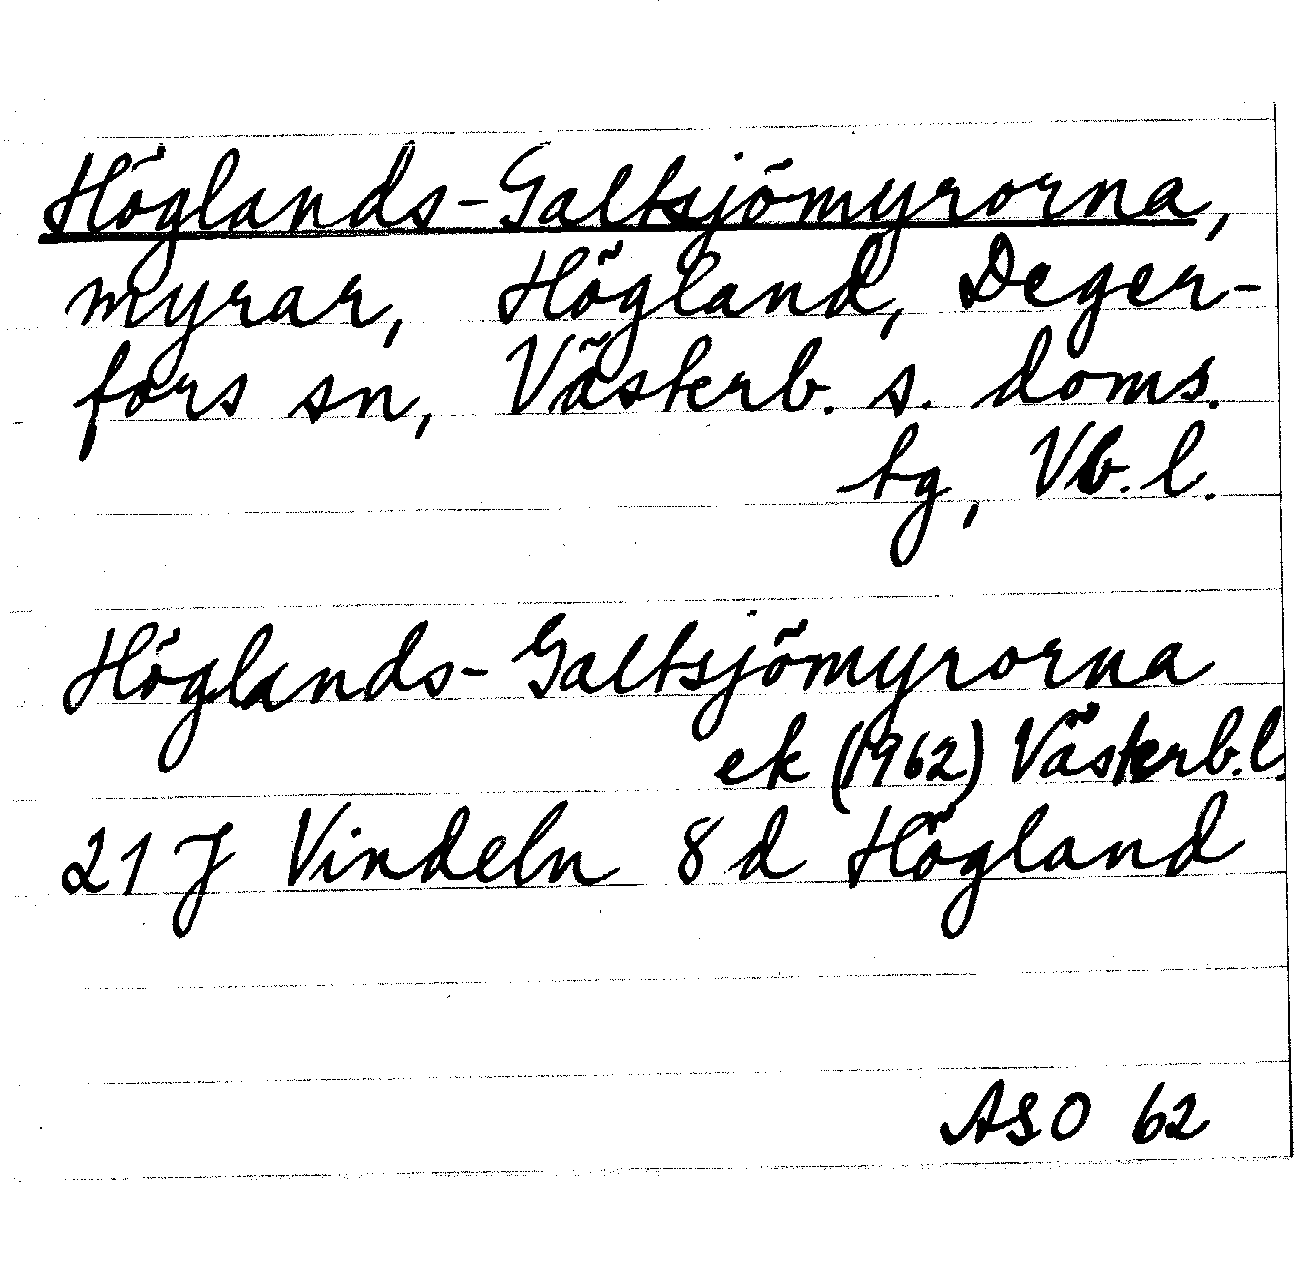 Höglands-Galtsjömyrorna,
myrar, Högland, Deger-
fors sn, Västerb. s. doms.
tg, Vb. l.
Höglands-Galtsjömyrorna
ek (1962) Västerb. l.
21 J Vindeln 8 d Högland
ASO 62